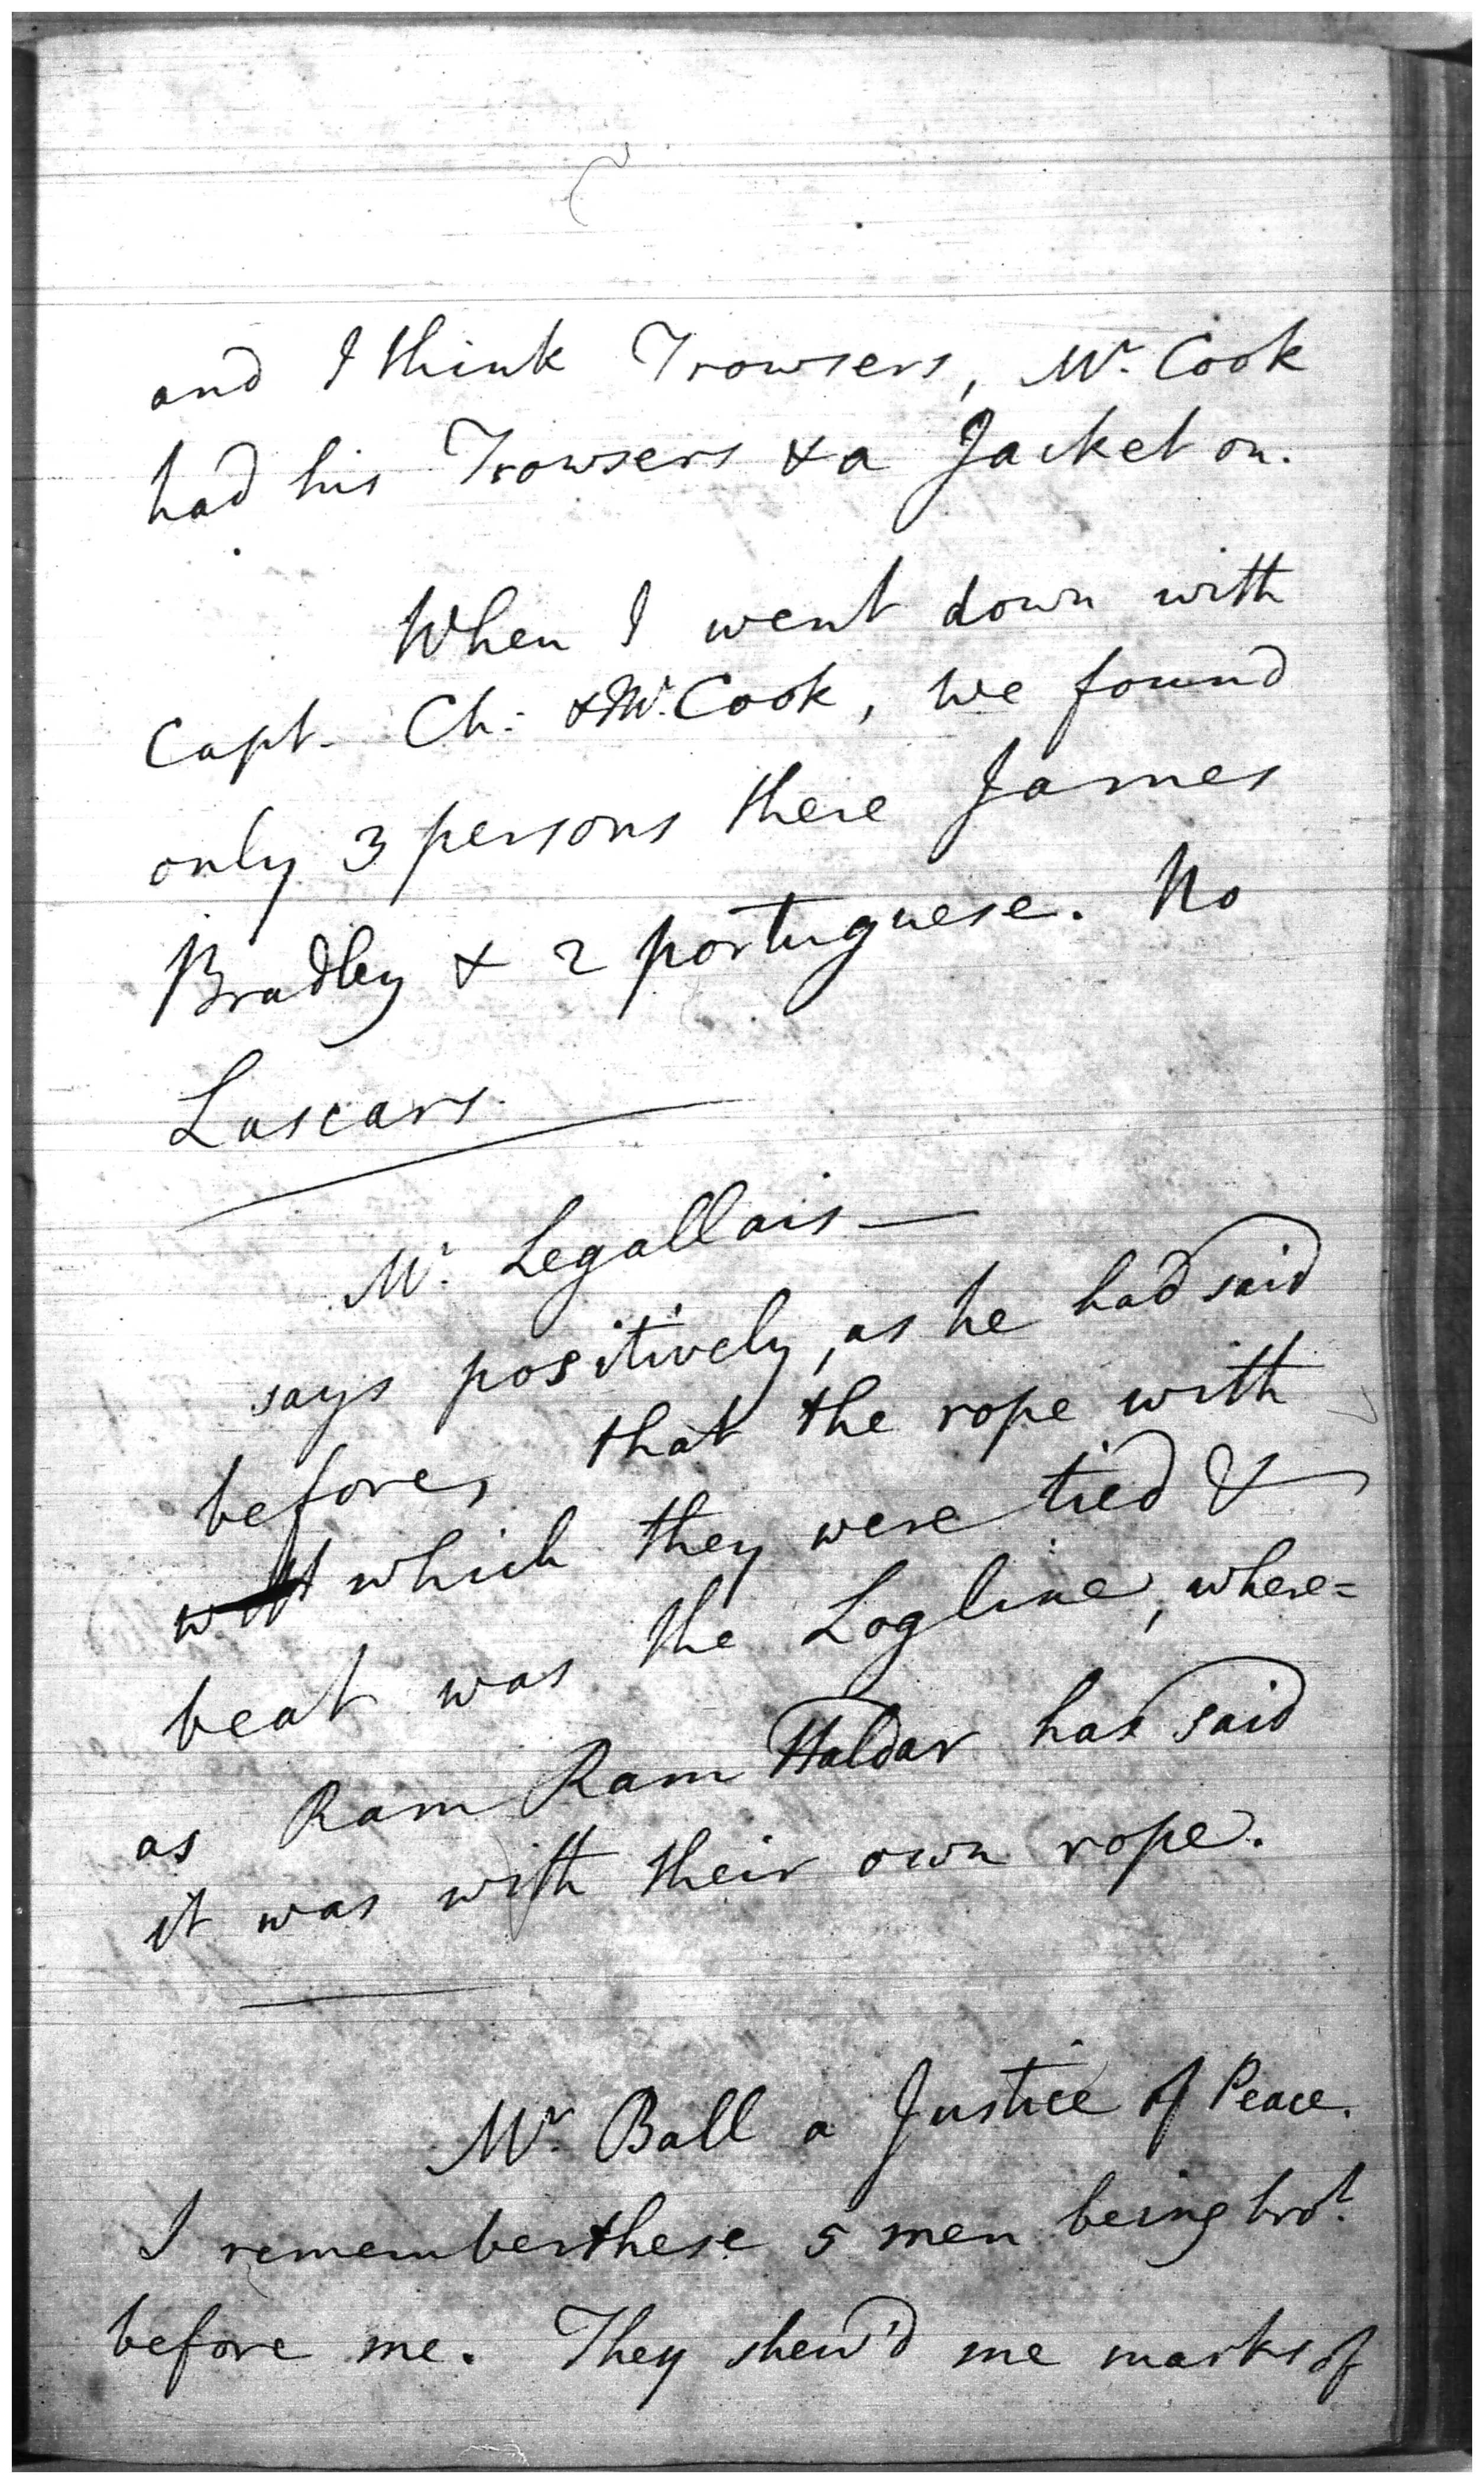 and I think Trowsers, Mr. Cook
had his Trowsers & a Jacket on.
When I went down with
Capt. Ch: & Mr. Cook, we found
only 3 persons there James
Bradley & 2 portuguese. No
Lascars.
Mr. Legallais—
says positively, as he had said
before, that the rope with
which they were tied &
beat was the Logline, where=
as Ram Ram Haldar has said
it was with their own rope.
Mr. Ball a Justice of Peace.
I remember these 5 men being bro.t
before me. They shew'd me marks of